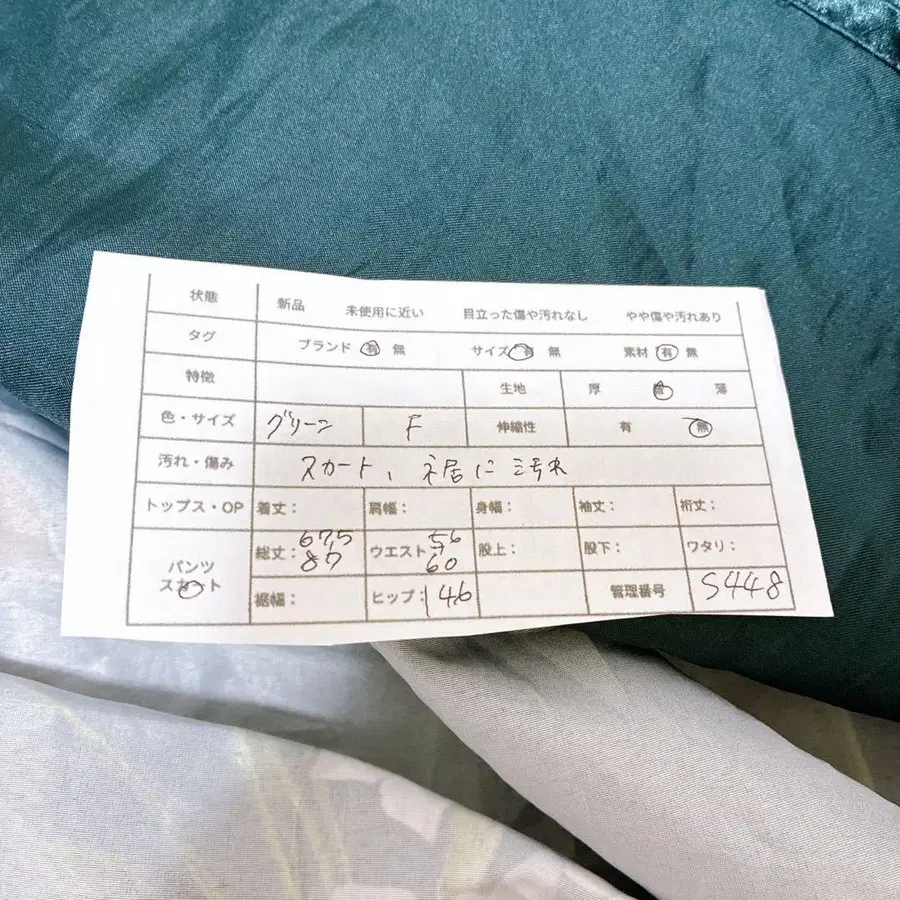 状態 新品 未使用に近い 目立った傷や汚れなし やや傷や汚れあり
タグ ブランド 有 無 サイズ 有 無 素材 有 無
特徴 生地 厚 普 薄
色・サイズ グリーン F 伸縮性 有 無
汚れ・傷み スカート、ネ居に汚れ
トップス・OP 着丈: 肩幅: 身幅: 袖丈: 裄丈:
パンツ スカート 総丈: 67,5 87 ウエスト 56 60 股上: 股下: ワタリ:
裾幅: ヒップ: 146 管理番号 S448